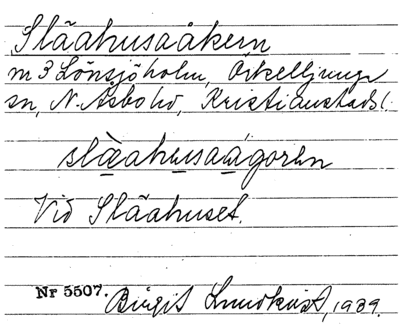 Slāahusaåkern
m 3 Lönsjöholm, Örkelljunga
sn, N. Åsbo hd, Kristianstads l.
slàahusaágorhn
Vid Slāahuset.
Nr 5507. Birgit Lundkvist, 1939.